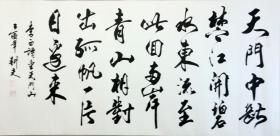 天門中斷
楚江開碧
水東流至
此回兩岸
青山相對
出孤帆一片
日邊来
李白詩望天門山